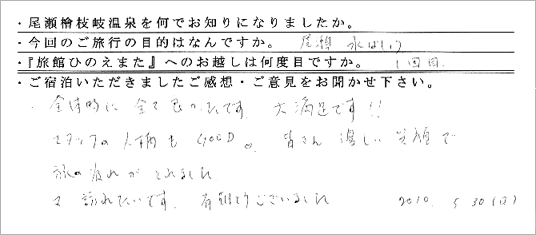 ・尾瀬檜枝岐温泉を何でお知りになりましたか。
・今回のご旅行の目的はなんですか。 尾瀬 水ばしょう
・『旅館ひのえまた』へのお越しは何度目ですか。 1回目.
・ご宿泊いただきましたご感想・ご意見をお聞かせ下さい。
・全体的に全て良かったです。大満足です!!
スタッフの人柄もGOOD。皆さん優しい笑顔で
旅の疲れがとれました
又訪れたいです。有難とうございました 2010. 5.30(日)